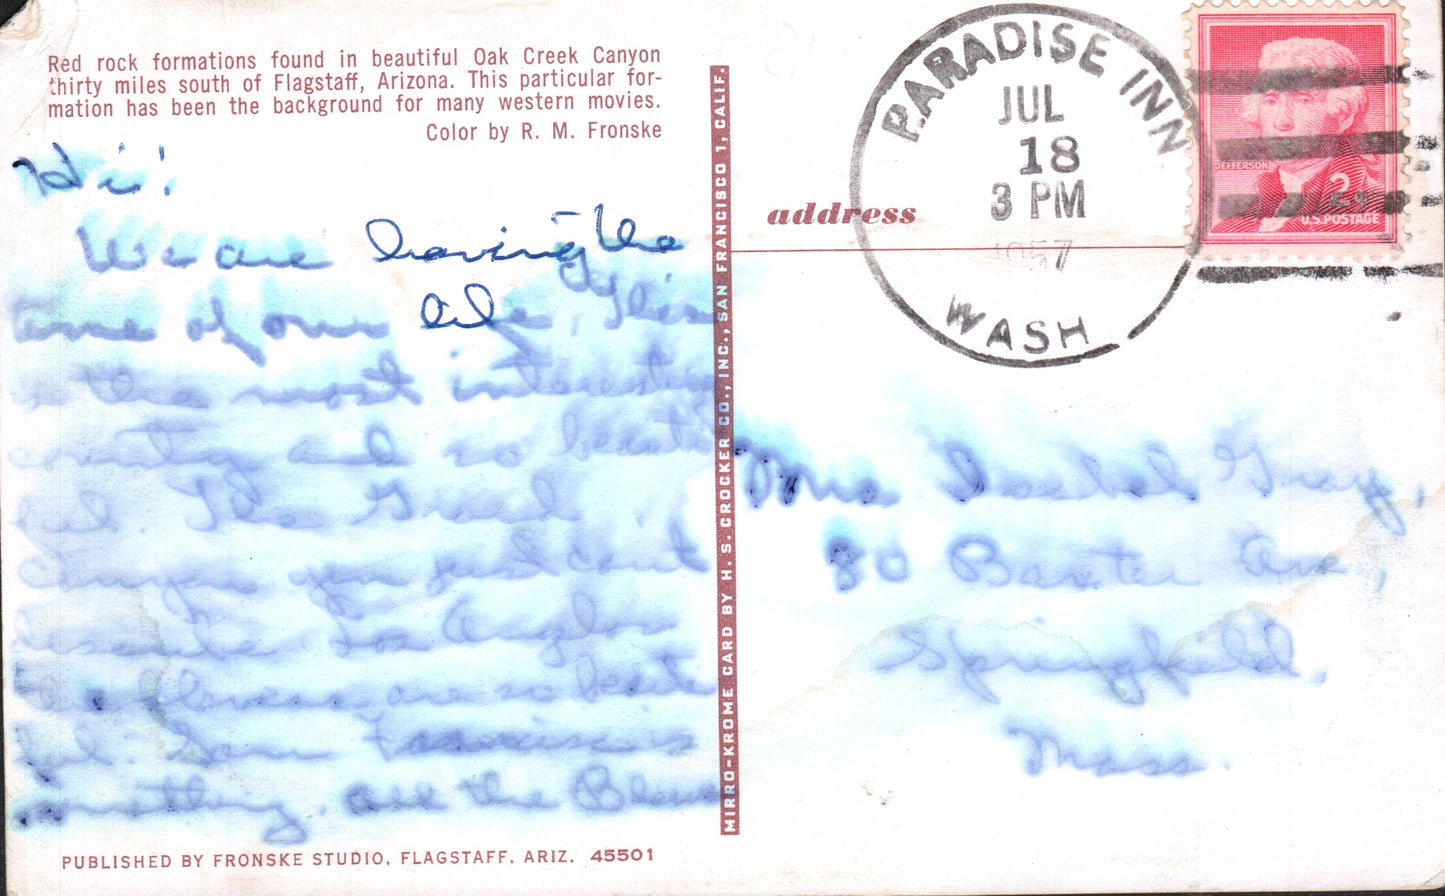 Red rock formations found in beautiful Oak Creek Canyon
thirty miles south of Flagstaff, Arizona. This particular for-
mation has been the background for many western movies.
Color by R. M. Fronske
Hi!
We are having the
time of our life. This
is the most interesting
country and so beauti
ful. The Grand
Canyon you just can't
describe. Los Angeles
flowers are so beauti
ful. San Francisco is
something. all the
PUBLISHED BY FRONSKE STUDIO, FLAGSTAFF, ARIZ. 45501
MIRRO-KROME CARD BY H. S. CROCKER CO., INC., SAN FRANCISCO 1, CALIF.
PARADISE INN
JUL
18
3 PM
1957
WASH
JEFFERSON
2¢
U.S. POSTAGE
address
Mrs Isabel Gray,
80 Baxter Ave,
Springfield,
Mass.